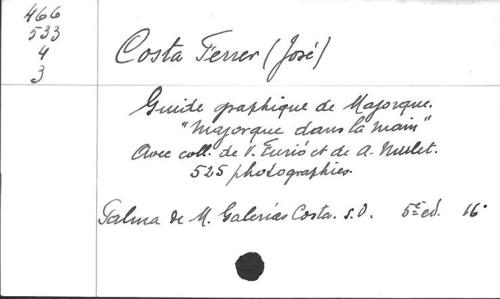 466
533
4
3
Costa Ferrer (José)
Guide graphique de Majorque.
"Majorque dans la main"
Avec coll. de V. Furió et de A. Mulet.
525 photographies.
Palma de M. Galerías Costa. s.d. 5e ed. 16º